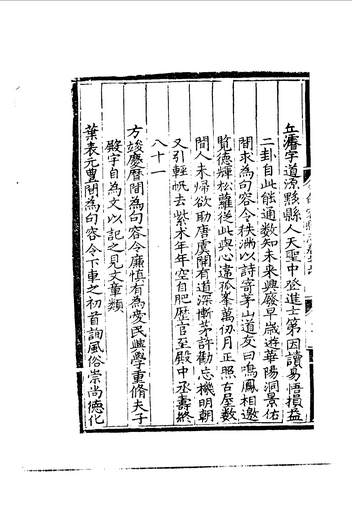 丘濬字道源黟縣人天聖中登進士第因讀易悟損益
二卦自此能通數知未來興廢早歲遊華陽洞景佑
間求為句容令秩滿以詩寄茅山道友曰鳴鳳相邀
覽德輝松蘿從此與心違孤峯萬仞月正照古屋數
間人未歸欲助唐虞開有道深慚茅許勸忘機明朝
又引輕帆去紫术年年空自肥歷官至殿中丞壽終
八十一
方峻慶曆間為句容令廉慎有為愛民興學重脩夫子
殿字自為文以記之見文章類
葉表元豐間為句容令下車之初首詢風俗崇尚德化